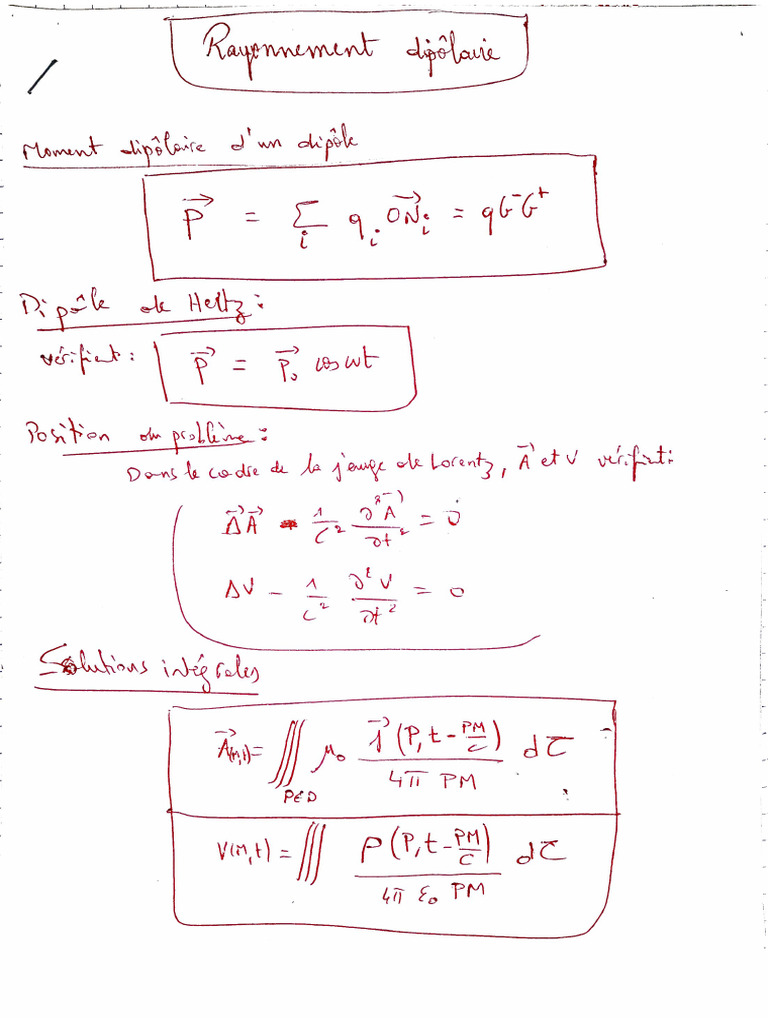 Rayonnement dipôlaire
Moment dipôlaire d'un dipôle
P⃗ = Σ_i q_i ON⃗_i = q G⁻G⁺
Dipôle de Hertz :
vérifient : P⃗ = P⃗₀ cos ωt
Position du problème :
Dans le cadre de la jauge de Lorentz, A⃗ et V vérifient :
Δ⃗A⃗ - 1/C² ∂²A⃗/∂t² = 0⃗
ΔV - 1/C² ∂²V/∂t² = 0
Solutions intégrales
A⃗(M,t) = ∭_{P∈D} μ₀ j⃗(P, t - PM/C) / (4π PM) dτ
V(M,t) = ∭ ρ(P, t - PM/C) / (4π ε₀ PM) dτ